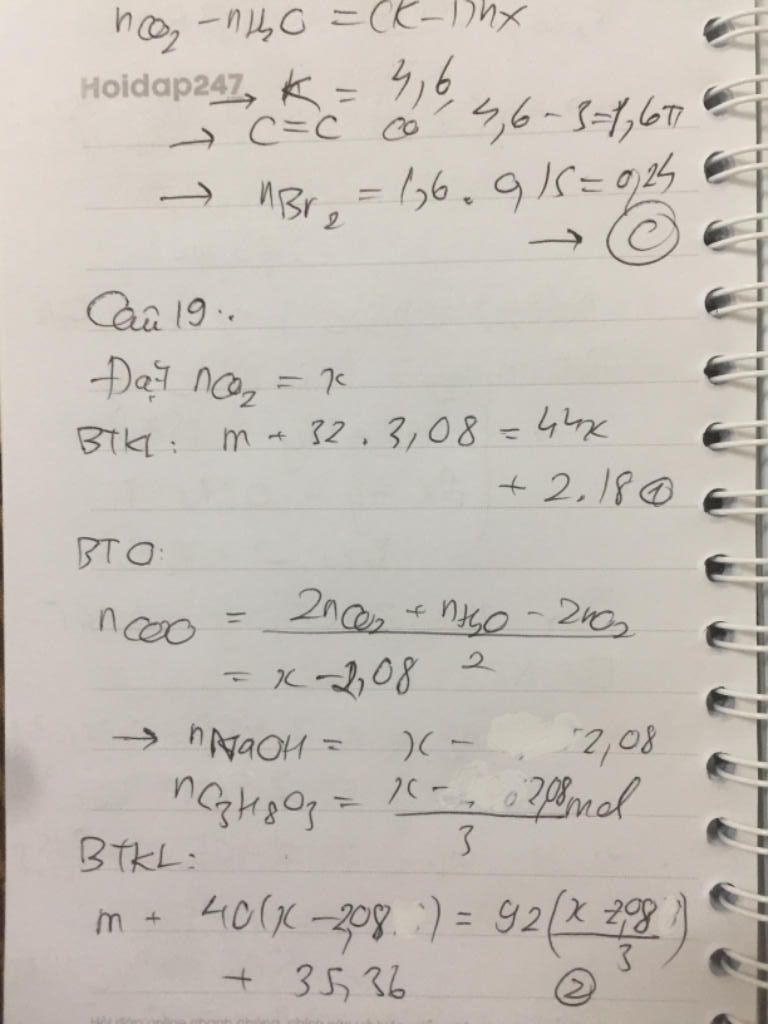 nCO₂ - nH₂O = (K-1)nx
Hoidap247
→ K = 4,6
→ C=C có 4,6 - 3 = 1,6π
→ nBr₂ = 1,6 . 0,15 = 0,24
→ C
Câu 19:
Đặt nCO₂ = x
BTKL: m + 32 . 3,08 = 44x
+ 2.18 ①
BTO:
nCOO = \frac{2nCO₂ + nH₂O - 2nO₂}{2}
= x - 2,08
→ nNaOH = x - 2,08
nC₃H₈O₃ = \frac{x - 2,08}{3} mol
BTKL:
m + 40(x - 2,08) = 92(\frac{x - 2,08}{3})
+ 35,36 ②